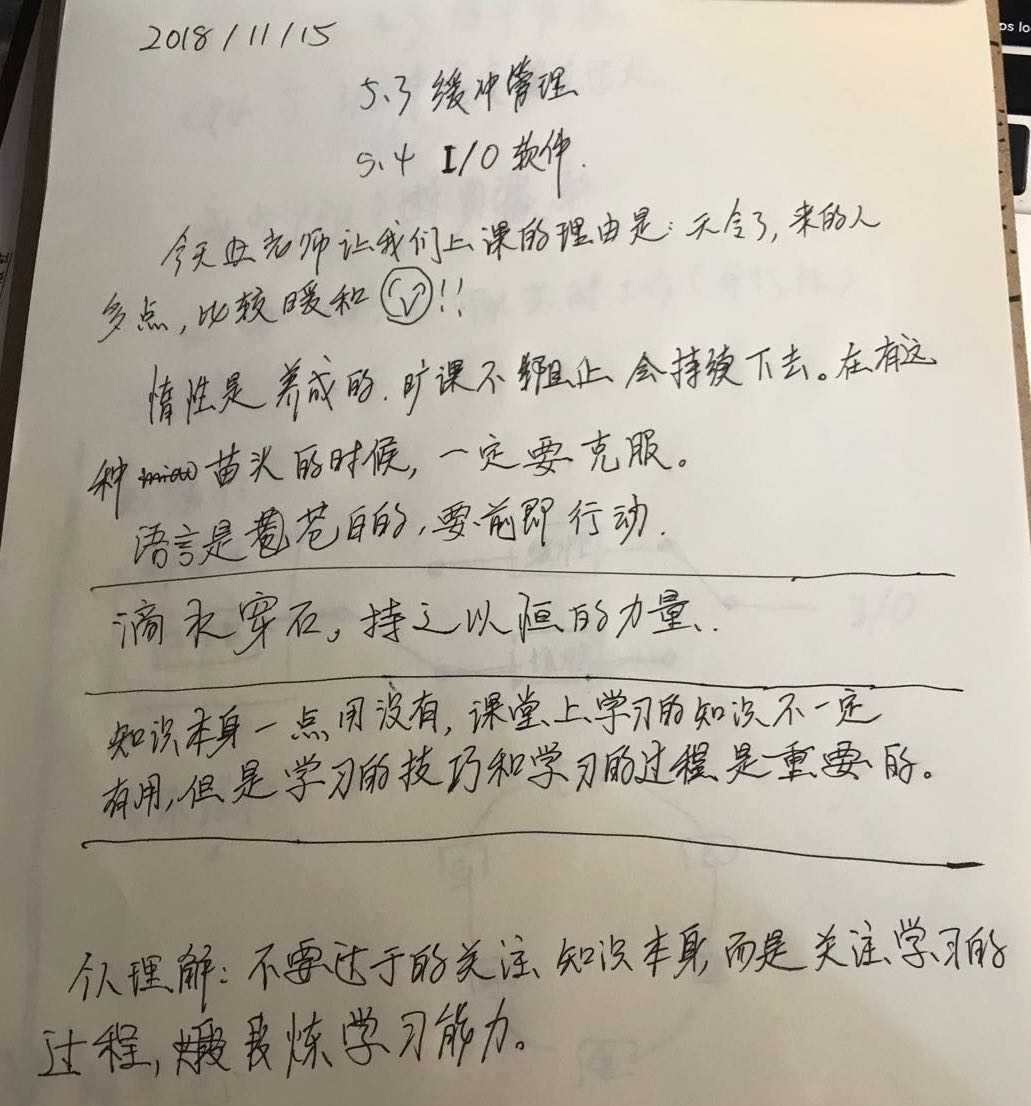 2018/11/15
5.3 缓冲管理
5.4 I/O 软件.
今天 老师让我们上课的理由是:天冷了,来的人
多点,比较暖和 !!
惰性是养成的.旷课不阻止会持续下去。在有这
种 苗头的时候,一定要克服。
语言是苍白的,要 即行动.
滴水穿石,持之以恒的力量.
知识本身一点用没有,课堂上学习的知识不一定
有用,但是学习的技巧和学习的过程是重要的。
个人理解:不要过于的关注知识本身,而是关注学习的
过程, 炼学习能力。
ps lo